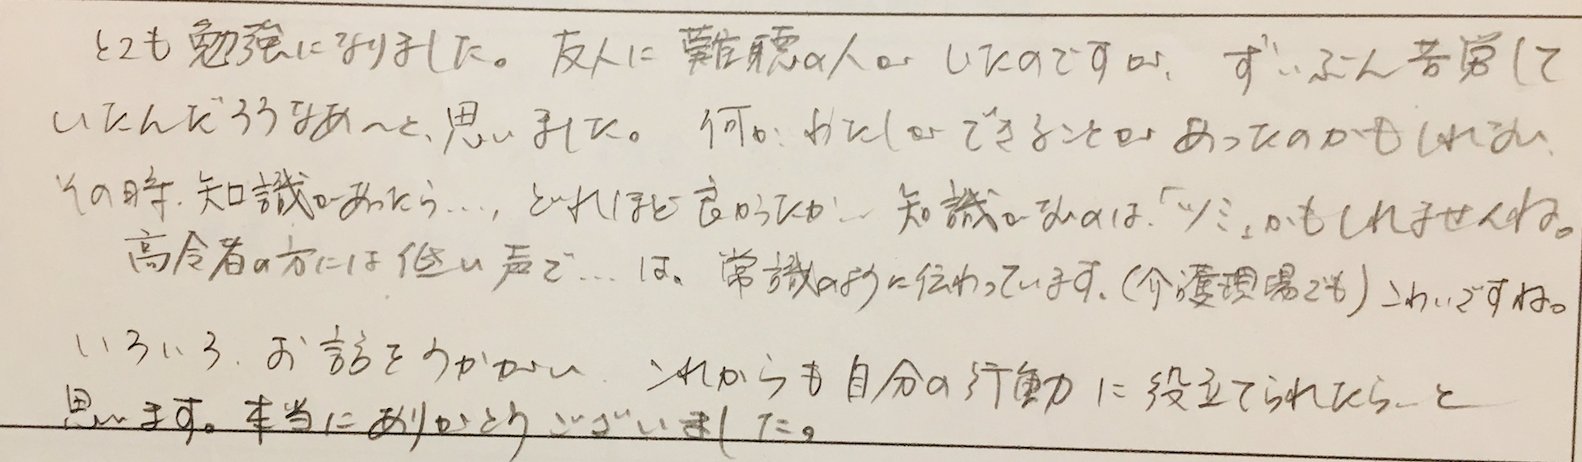 とても勉強になりました。友人に難聴の人がいたのですが、ずいぶん苦労して
いたんだろうなあ〜と、思いました。何か、わたしができることがあったのかもしれない、
その時、知識があったら…、どれほど良かったか… 知識がないのは、「ツミ」かもしれませんね。
高令者の方には低い声で…は、常識のように伝わっています、(介護現場でも)こわいですね。
いろいろ、お話をうかがい、これからも自分の行動に役立てられたら…と
思います。本当にありがとうございました。